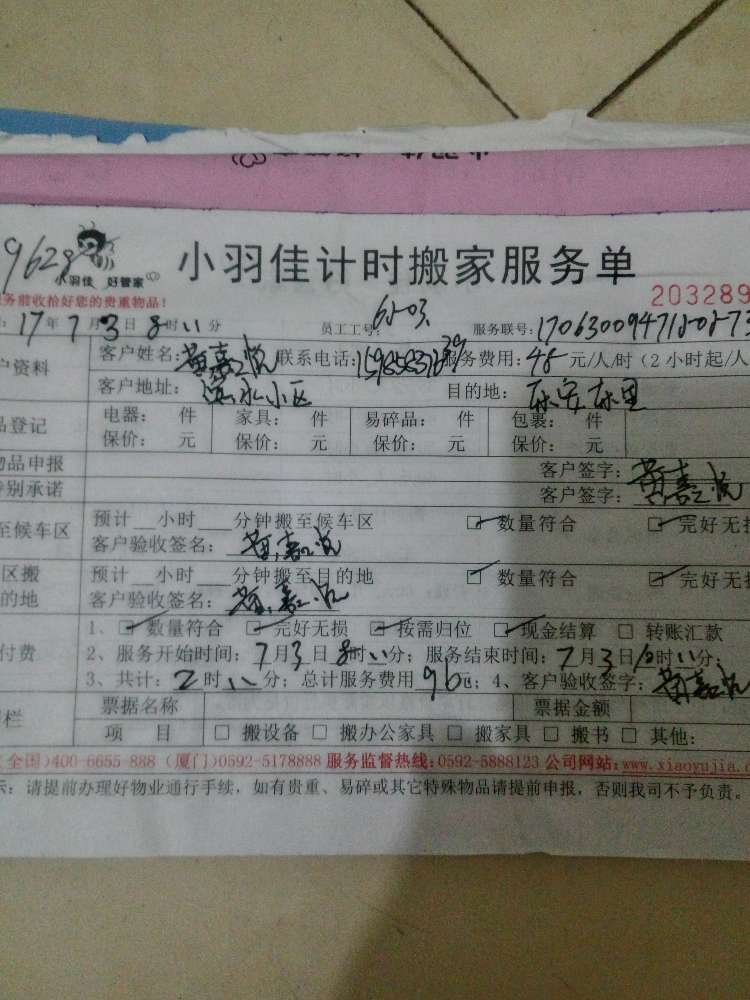 9628
小羽佳 好管家
小羽佳计时搬家服务单
务前收拾好您的贵重物品！
203289
17年7月3日8时11分 员工工号: 6503 服务联号:
户资料 客户姓名: 黄嘉悦 联系电话: 服务费用: 48元/人/时（2小时起/人
客户地址: 滨水小区 目的地: 东安东里
品登记 电器: 件 家具: 件 易碎品: 件 包裹: 件
保价: 元 保价: 元 保价: 元 保价: 元
物品申报 客户签字: 黄嘉悦
特别承诺 客户签字: 黄嘉悦
至候车区 预计__小时___分钟搬至候车区 数量符合 完好无损
客户验收签名: 黄嘉悦
区搬 预计__小时___分钟搬至目的地 数量符合 完好无损
的地 客户验收签名: 黄嘉悦
付费 1、数量符合 完好无损 按需归位 现金结算 转账汇款
2、服务开始时间: 7月3日8时11分; 服务结束时间: 7月3日10时11分;
3、共计: 2时 分; 总计服务费用96元; 4、客户验收签字: 黄嘉悦
栏 票据名称 票据金额
项 目 搬设备 搬办公家具 搬家具 搬书 其他:
(全国)400-6655-888 (厦门)0592-5178888 服务监督热线:0592-5888123 公司网站:www.xiaoyujia.c
示: 请提前办理好物业通行手续，如有贵重、易碎或其它特殊物品请提前申报，否则我司不予负责。